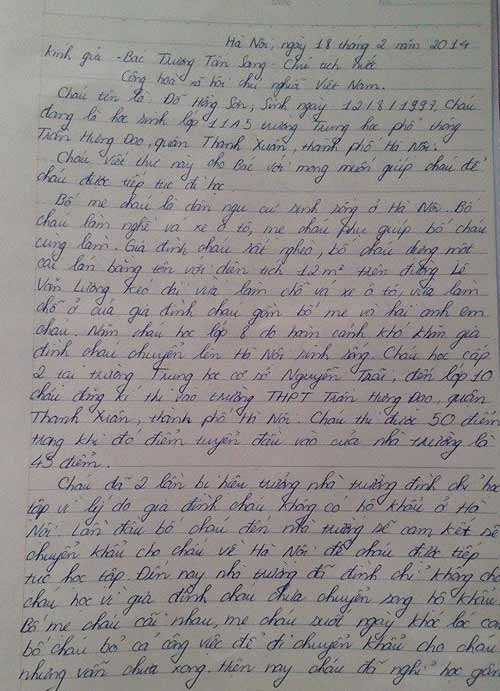 Hà Nội, ngày 18 tháng 2 năm 2014
Kính gửi - Bác Trương Tấn Sang - Chủ tịch nước
Cộng hoà xã hội chủ nghĩa Việt Nam.
Cháu tên là Đỗ Hồng Sơn, sinh ngày 12/8/1997, Cháu
đang là học sinh lớp 11A5 trường Trung học phổ thông
Trần Hưng Đạo, quận Thanh Xuân, thành phố Hà Nội.
Cháu viết thư này cho Bác với mong muốn giúp cháu để
cháu được tiếp tục đi học.
Bố mẹ cháu là dân ngụ cư sinh sống ở Hà Nội. Bố
cháu làm nghề vá xe ô tô, mẹ cháu phụ giúp bố cháu
cùng làm. Gia đình cháu rất nghèo, bố cháu dựng một
cái lán bằng tôn với diện tích 12m² trên đường Lê
Văn Lương kéo dài vừa làm chỗ vá xe ô tô, vừa làm
chỗ ở của gia đình cháu gồm bố mẹ và hai anh em
cháu. Năm cháu học lớp 8 do hoàn cảnh khó khăn gia
đình cháu chuyển lên Hà Nội sinh sống. Cháu học cấp
2 tại trường Trung học cơ sở Nguyễn Trãi, đến lớp 10
cháu đăng kí thi vào trường THPT Trần Hưng Đạo, quận
Thanh Xuân, thành phố Hà Nội. Cháu thi được 50 điểm
trong khi đó điểm tuyển đầu vào của nhà trường là
45 điểm.
Cháu đã 2 lần bị hiệu trưởng nhà trường đình chỉ học
tập vì lý do gia đình cháu không có hộ khẩu ở Hà
Nội. Lần đầu bố cháu đến nhà trường sẽ cam kết sẽ
chuyển khẩu cho cháu về Hà Nội để cháu được tiếp
tục học tập. Đến nay nhà trường đã đình chỉ không cho
cháu học vì gia đình cháu chưa chuyển xong hộ khẩu.
Bố mẹ cháu cãi nhau, mẹ cháu suốt ngày khóc lóc còn
bố cháu bỏ cả công việc để đi chuyển khẩu cho cháu
nhưng vẫn chưa xong. Hiện nay cháu đã nghỉ học gần